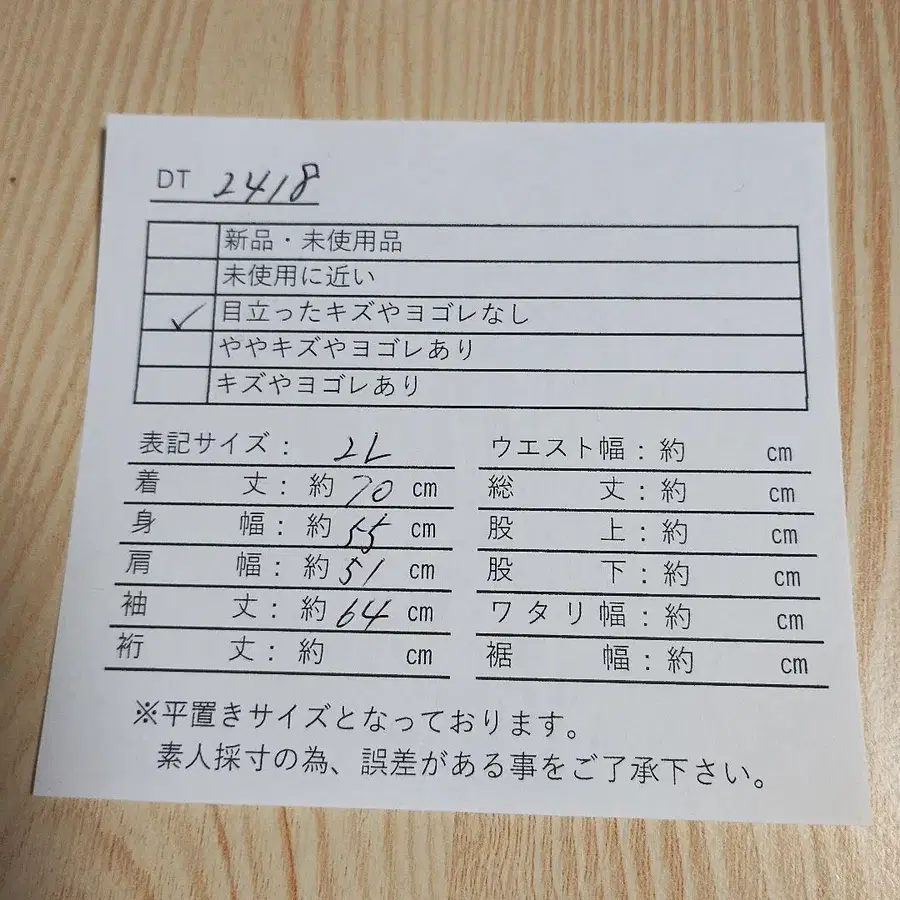 DT 2418
新品・未使用品
未使用に近い
✓ 目立ったキズやヨゴレなし
ややキズやヨゴレあり
キズやヨゴレあり
表記サイズ: 2L
着丈:約70cm
身幅:約55cm
肩幅:約51cm
袖丈:約64cm
裄丈:約 cm
ウエスト幅:約 cm
総丈:約 cm
股上:約 cm
股下:約 cm
ワタリ幅:約 cm
裾幅:約 cm
※平置きサイズとなっております。
素人採寸の為、誤差がある事をご了承下さい。